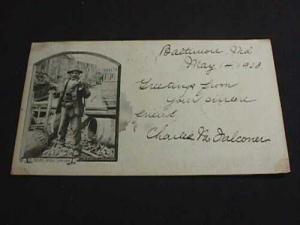 Baltimore, Md.
May 14, 1908.
Greetings from
your sincere
friend,
Charles W. Falconer